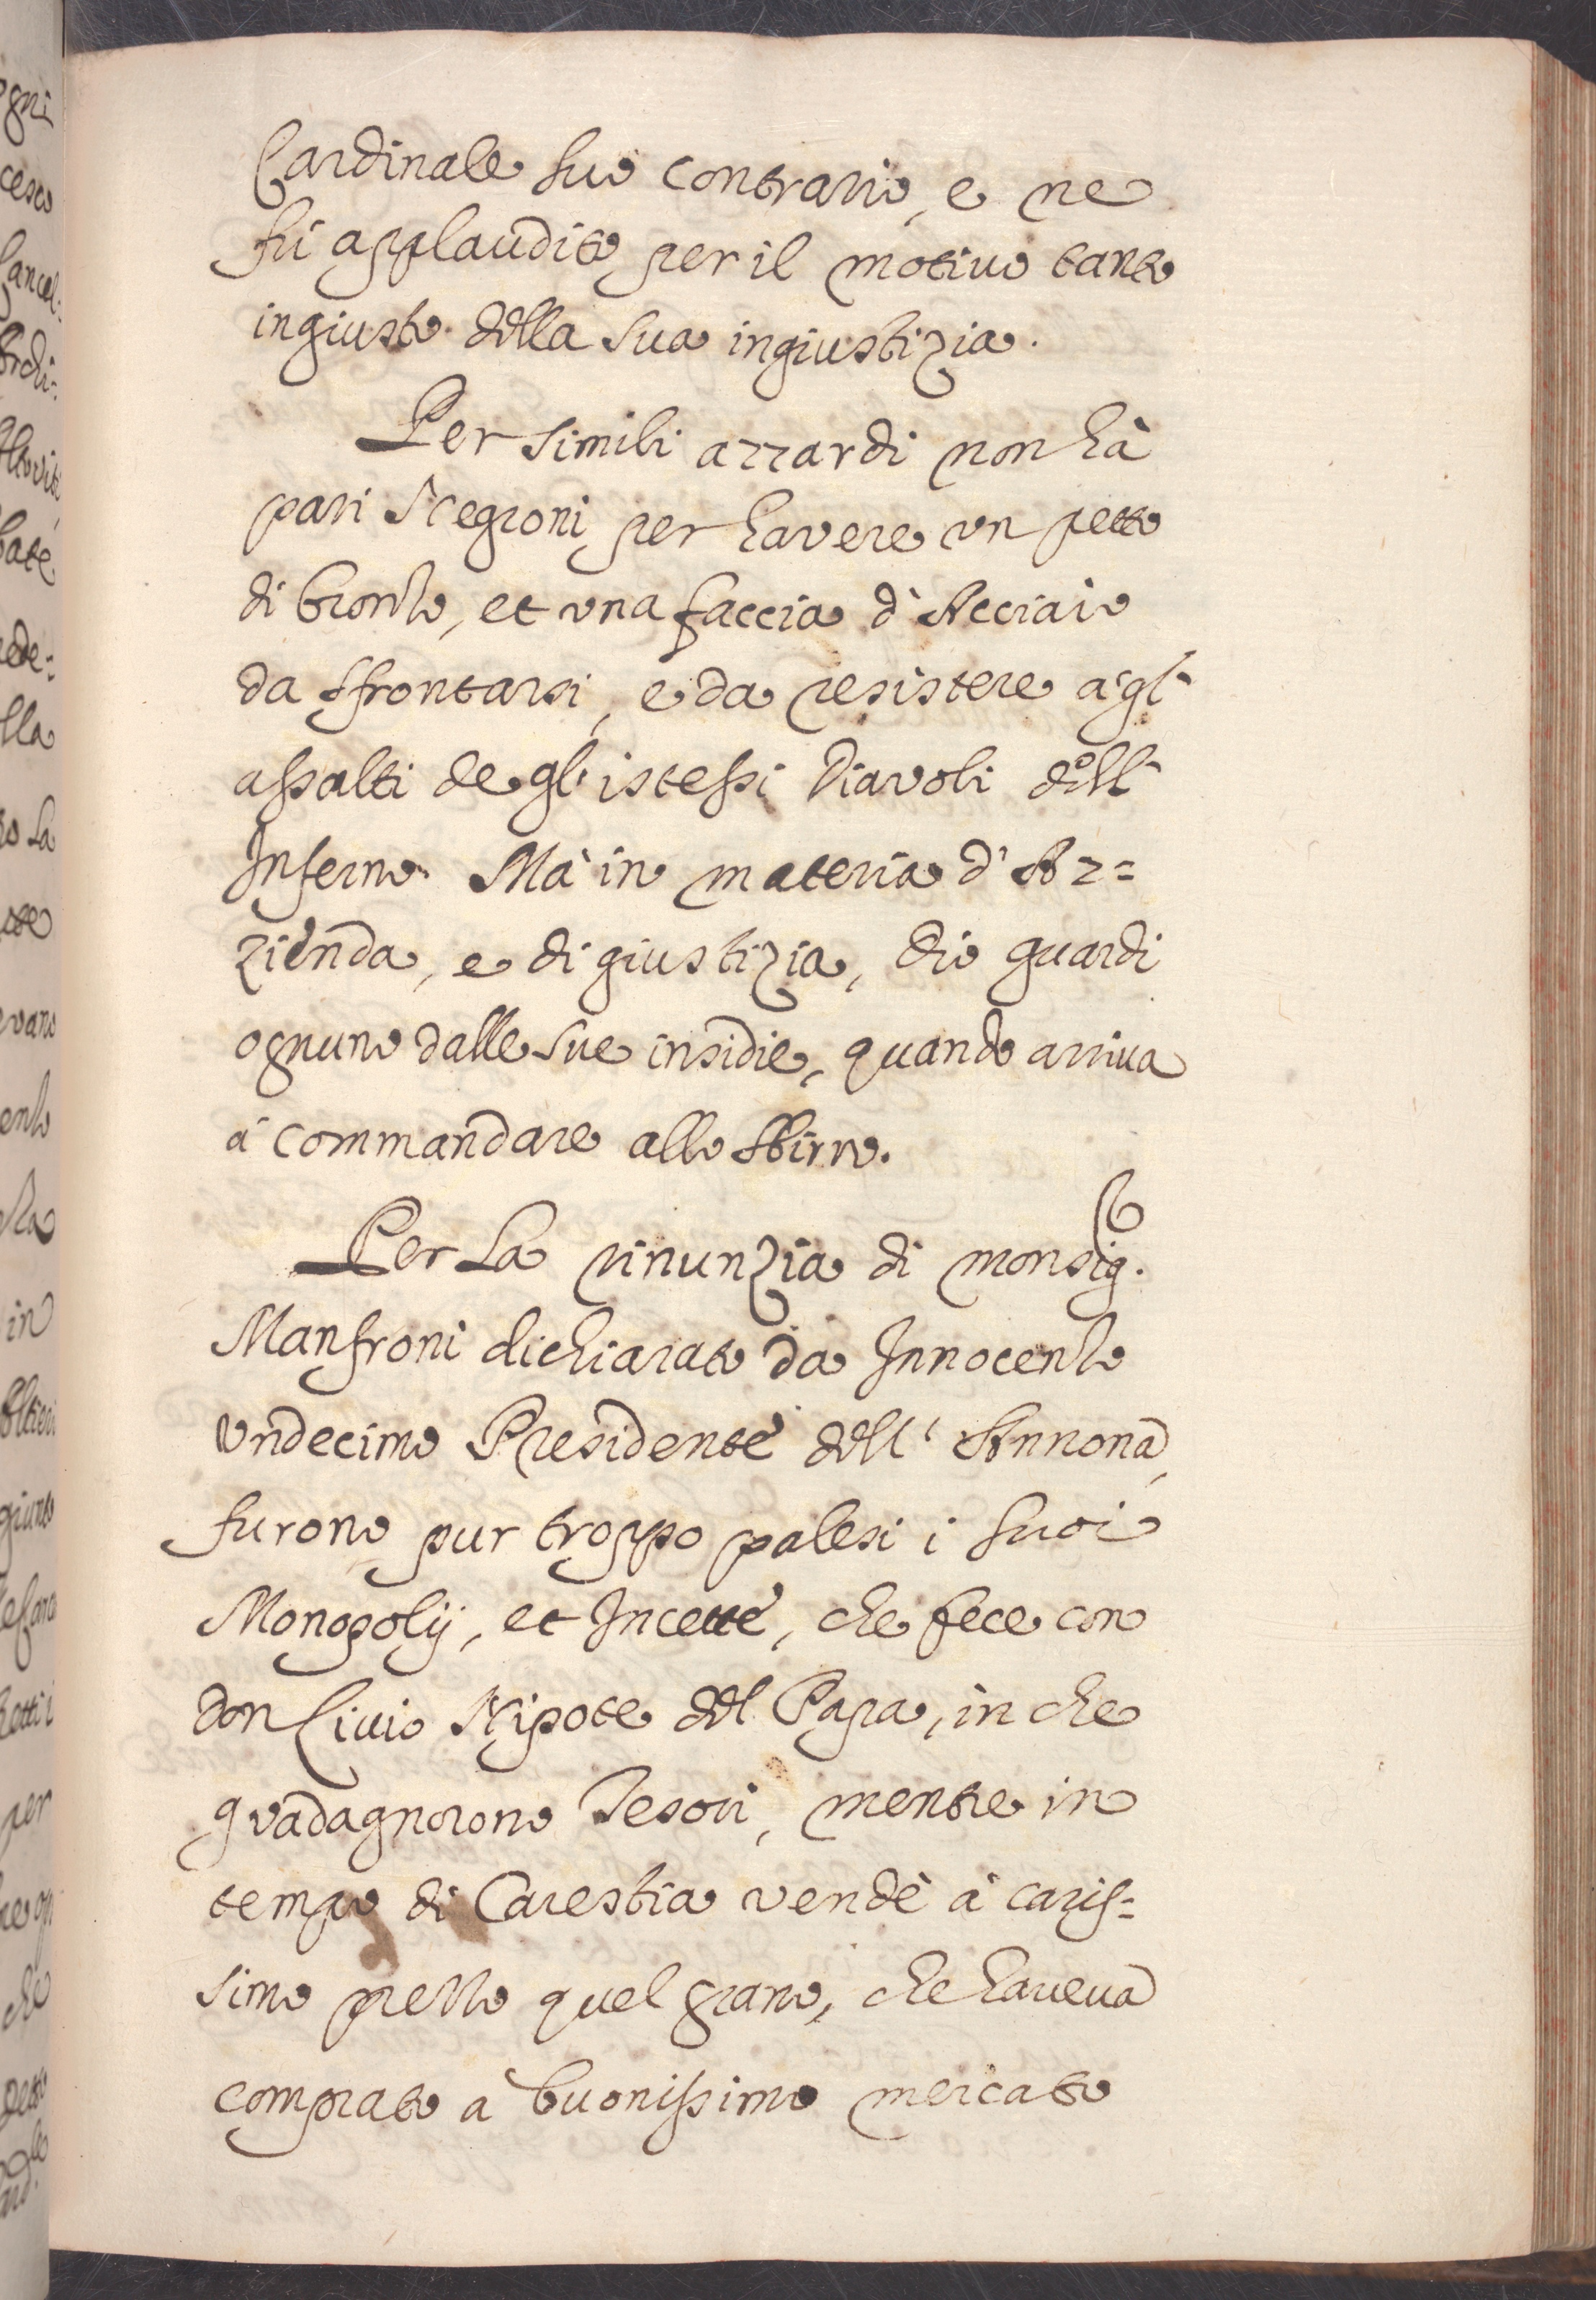 Cardinale suo contrario, e ne
fù applaudito per il motivo tanto
ingiusto della sua ingiustizia.
Per simili azzardi non hà
pari Negroni per havere un petto
di bronzo, et una faccia d'Acciaio
da affrontarsi, e da resistere à gl'
assalti de gl'istessi Diavoli dell'
Inferno. Mà in materia d'Az=
zienda, e di giustizia, dio guardi
ognuno dalle sue insidie, quando arriva
à commandare allo Sbirro.
Per La rinunzia di monsig.
Manfroni dichiarato da Innocenzo
Undecimo Presidente dell'Annona,
furono pur troppo palesi i suoi
Monopolij, et Incette, che fece con
Don Livio Nipote del Papa, in che
guadagnorono Tesori, mentre in
tempo di Carestia vendè à caris=
simo prezzo quel grano, che haveva
comprato à buonissimo mercato